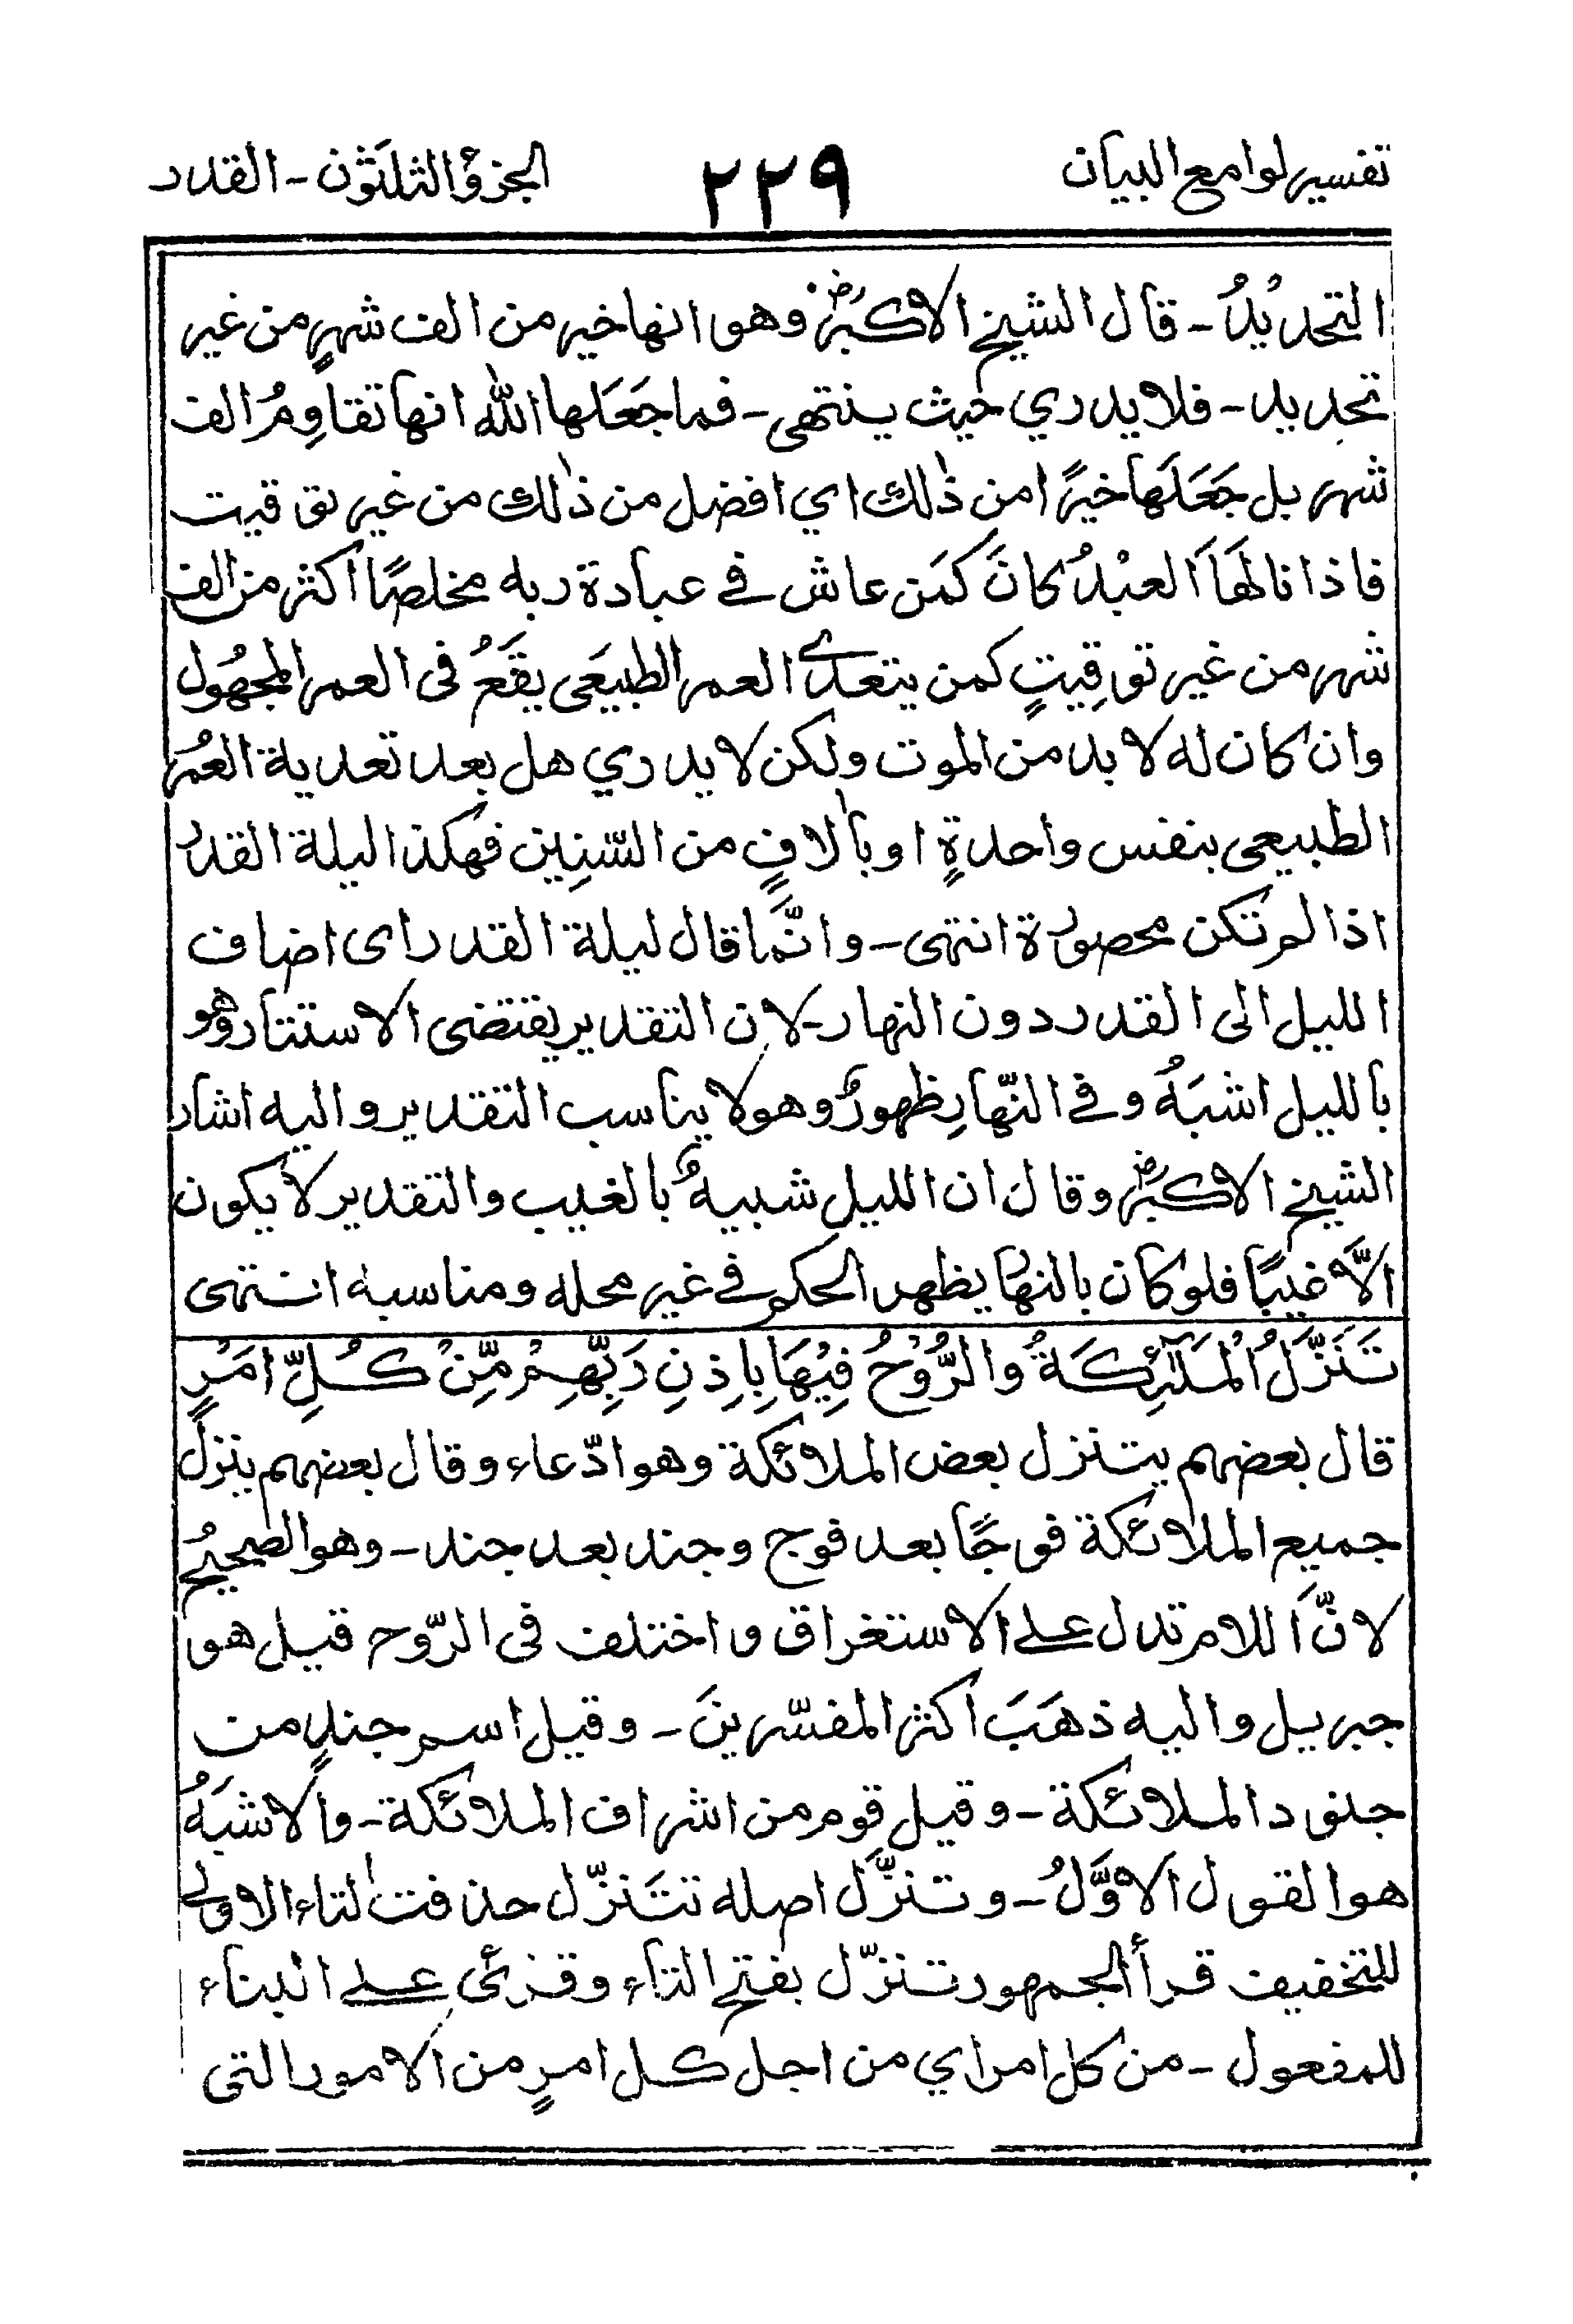 تفسير لوامع البيان ٢٢٩ الجزؤ الثلثون - القدر
التحديدُ - قال الشيخ الاكبرُ رض وهو انها خير من الف شهرٍ من غير
تحديد - فلا يدري حيث ينتهى - فما جَعَلها الله انها تقاوِمُ الف
شهر بل جَعَلَها خيرًا من ذٰلك اي افضل من ذٰلك من غير توقيت
فاذا نالَهَا العبْدُ كانَ كمَن عاش في عبادة ربه مخلصًا اكثر من الف
شهر من غير توقِيتٍ كمن يتعدى العمر الطبيعَى يقَعُ فى العمر المجهُول
وان كان له لا بد من الموت ولكن لا يدري هل بعد تعدية العُمر
الطبيعى بنفس واحدةٍ او بآلافٍ من السّنِين فهكذا ليلة القدر
اذا لم تكن محصورة انتهى - وانَّما قال ليلة القدر اى اضاف
الليل الى القدر دون النهار - لان التقدير يقتضى الاستتار وهو
بالليل اشبَهُ وفي النّهارِ ظهورٌ وهو لا يناسب التقدير واليه اشار
الشيخ الاكبرُ رض وقال ان الليل شبيهٌ بالغيب والتقدير لا يكون
الَّا غيبًا فلو كان بالنهار يظهر الحكم في غير محله ومناسبه انتهى
تَنَزَّلُ الْمَلٰٓئِكَةُ وَالرُّوْحُ فِيْهَا بِاِذْنِ رَبِّهِمْ مِّنْ كُلِّ اَمْرٍ
قال بعضهم يتنزل بعض الملائكة وهو ادّعاء وقال بعضهم ينزل
جميع الملائكة فوجًا بعد فوج وجند بعد جند - وهو الصحيحُ
لانّ اللام تدل على الاستغراق واختلف فى الرّوح قيل هو
جبريل واليه ذهَبَ اكثر المفسّرينَ - وقيل اسم جندٍ من
جنود الملائكة - وقيل قوم من اشراف الملائكة - والاشبَهُ
هو القول الاوَّلُ - وتنزَّل اصله تتَنزّل حذفت التاء الاولى
للتخفيف قرأ الجمهور تنزّل بفتح التاء وقرئ على البناء
للمفعول - من كل امر اي من اجل كل امرٍ من الامور التى